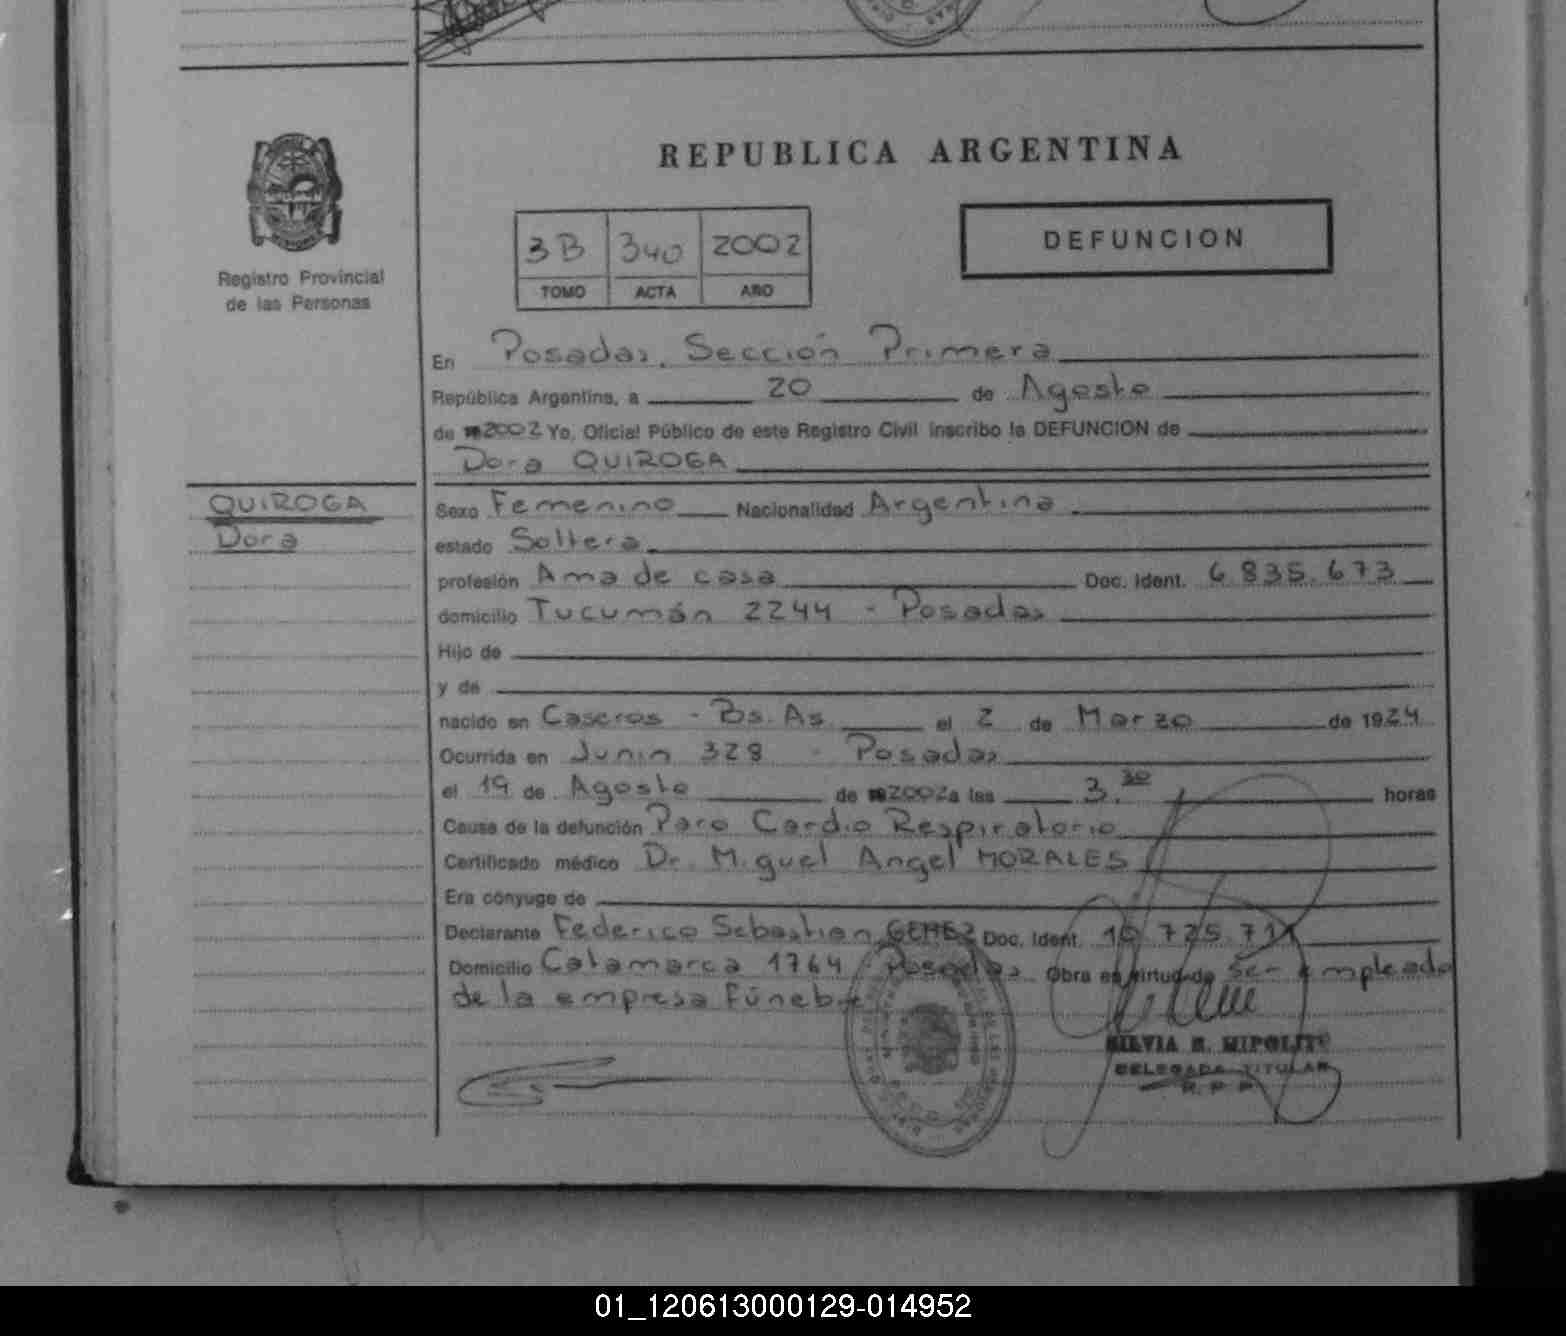 REPUBLICA ARGENTINA
Registro Provincial
de las Personas
3B 340 2002
TOMO ACTA AÑO
DEFUNCION
En Posadas, Sección Primera
República Argentina, a 20 de Agosto
de 2002 Yo, Oficial Público de este Registro Civil inscribo la DEFUNCION de
Dora QUIROGA
QUIROGA
Dora
Sexo Femenino Nacionalidad Argentina
estado Soltera
profesión Ama de casa Doc. Ident. 6.835.673
domicilio Tucumán 2244 - Posadas
Hijo de
y de
nacido en Caseros - Bs. As. el 2 de Marzo de 1924
Ocurrida en Junin 328 - Posadas
el 19 de Agosto de 2002 a las 3.30 horas
Causa de la defunción Paro Cardio Respiratorio
Certificado médico Dr. Miguel Angel MORALES
Era cónyuge de
Declarante Federico Sebastian Doc. Ident.
Domicilio Catamarca 1764 - Posadas Obra en virtud de Ser empleado
de la empresa Fúnebre
SILVIA R. HIPOLITO
DELEGADA TITULAR
R. P. P.
01_120613000129-014952